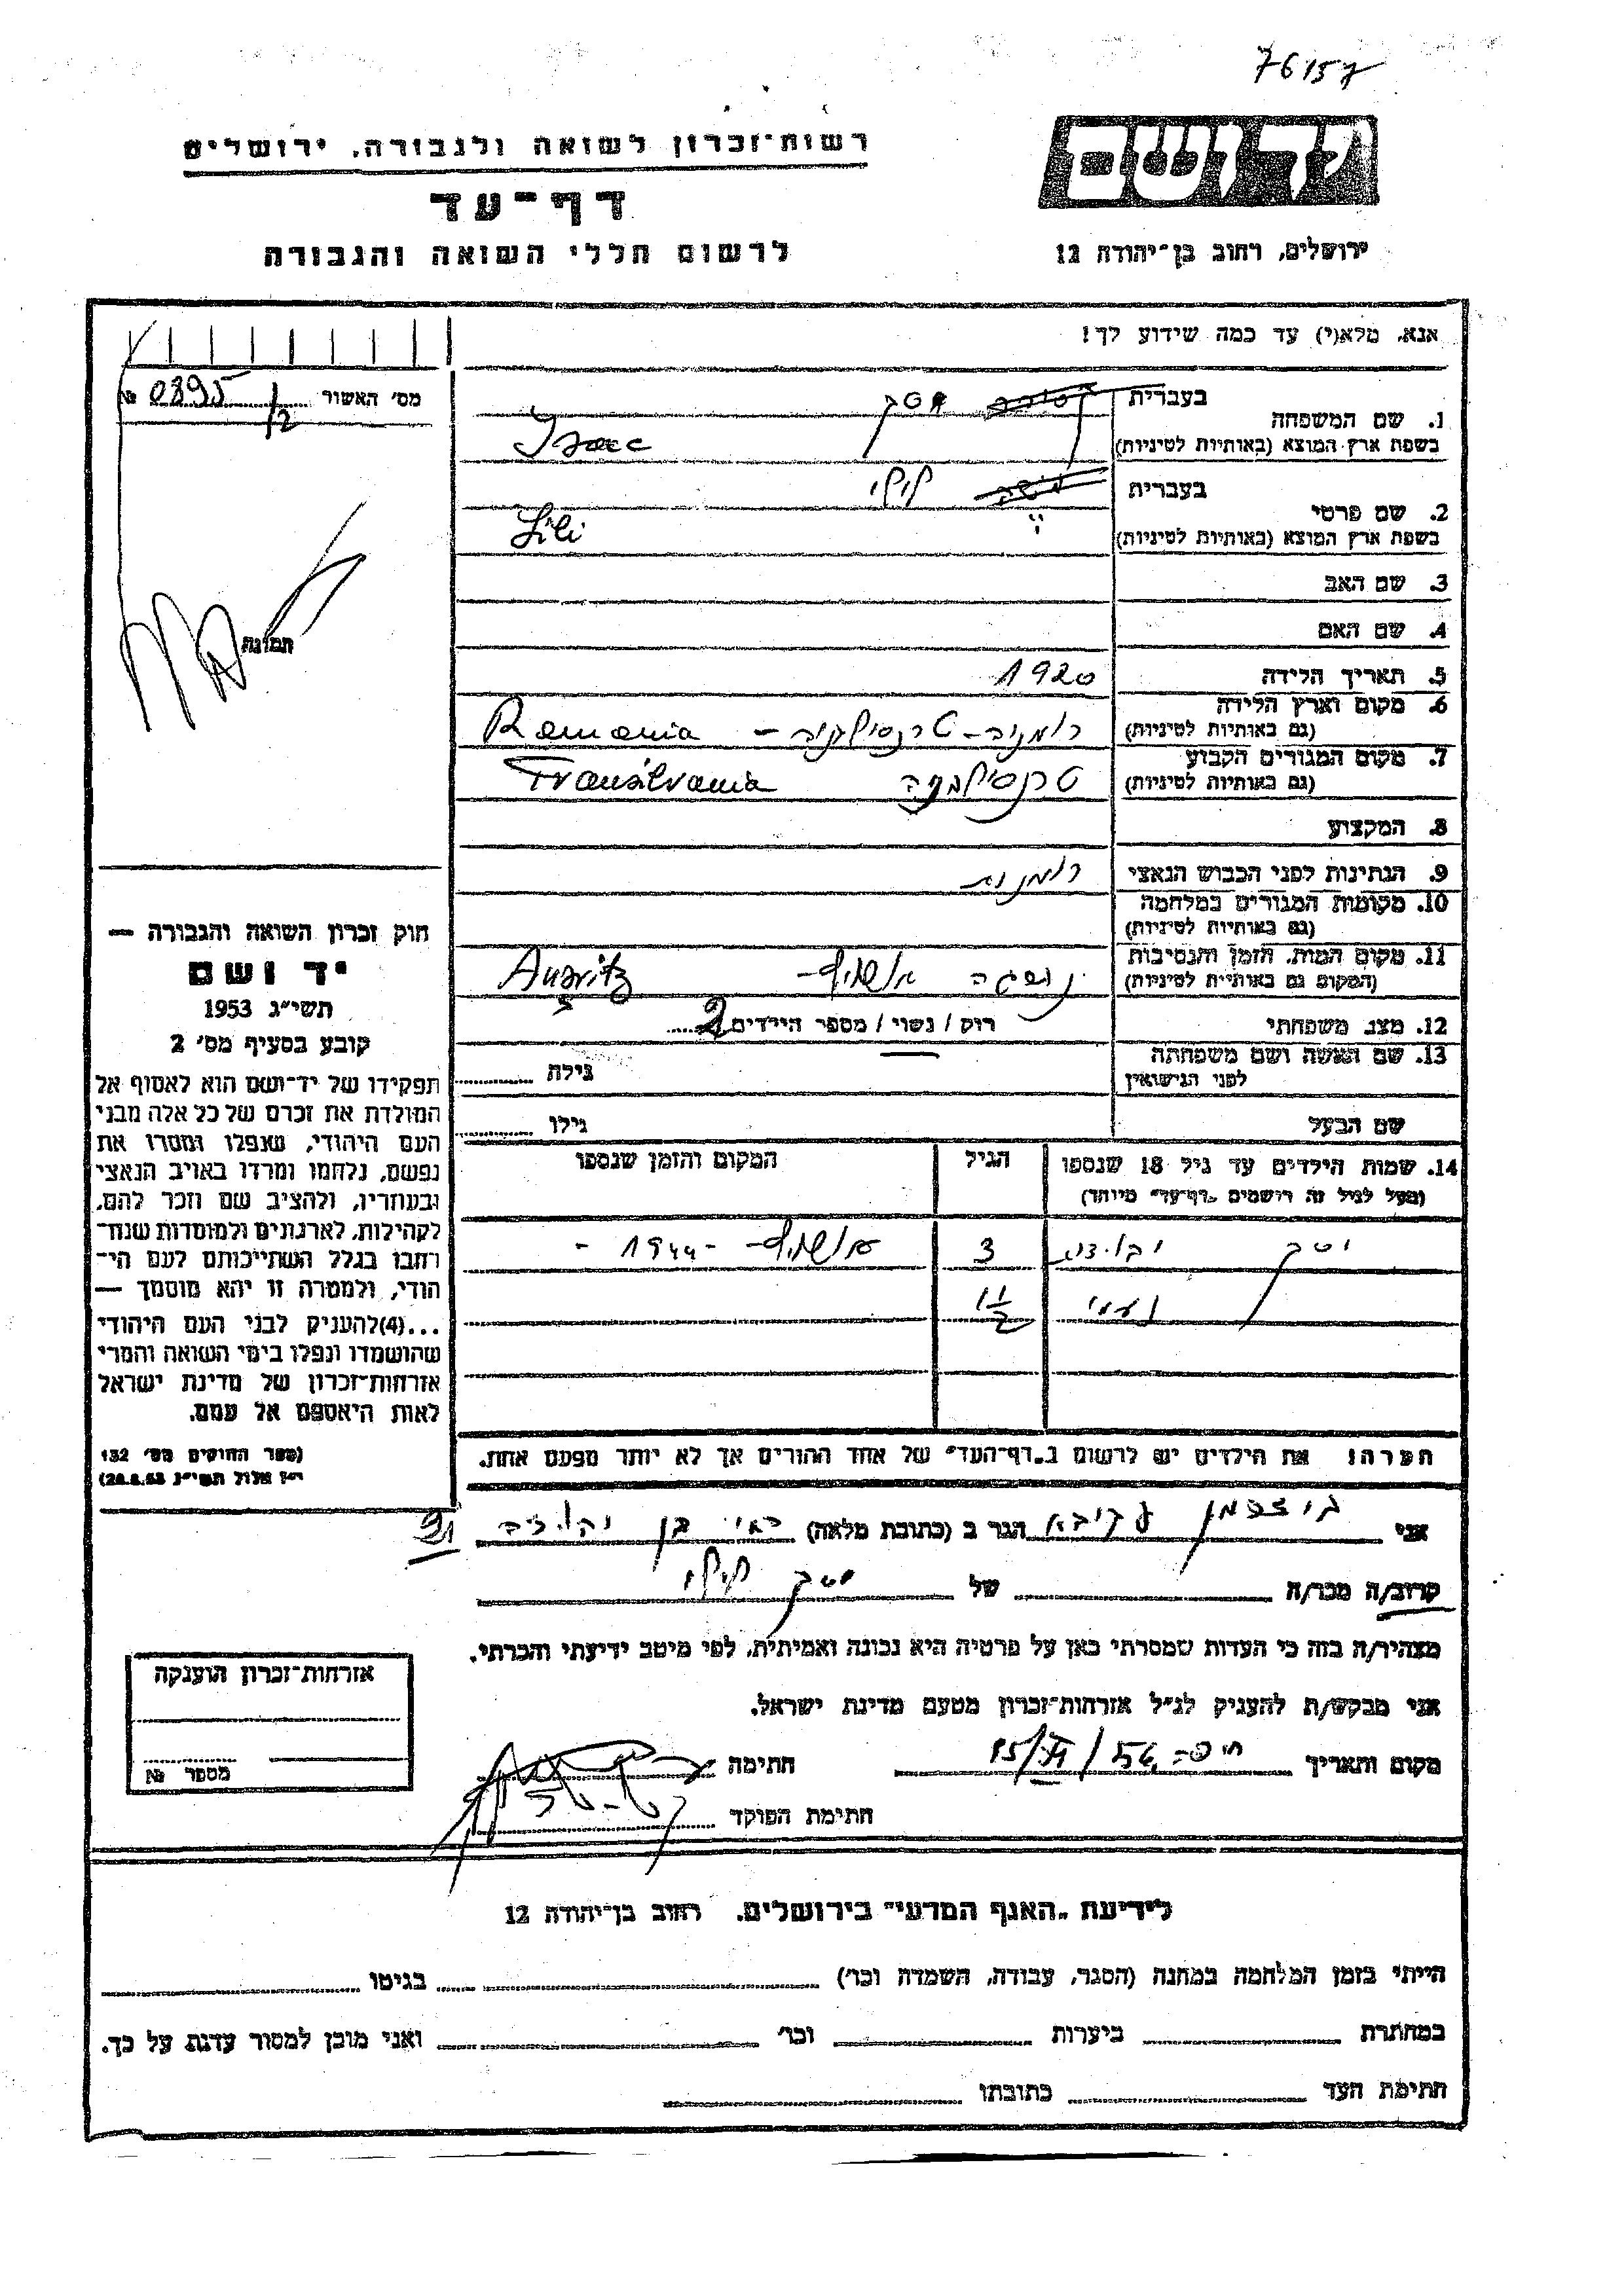 76157
רשות־זכרון לשואה ולגבורה, ירושלים
יד ושם
דף־עד
לרשום חללי השואה והגבורה
ירושלים, רחוב בן־יהודה 12
אנא, מלא(י) עד כמה שידוע לך!
מס' האשור № 0395/2
1. שם המשפחה
בעברית
בשפת ארץ המוצא (באותיות לטיניות) Isaac
2. שם פרטי
בעברית לילי
בשפת ארץ המוצא (באותיות לטיניות) Lili
3. שם האב
4. שם האם
תמונת
5. תאריך הלידה 1920
6. מקום וארץ הלידה
(גם באותיות לטיניות) רומניה - טרנסילבניה - Romania
7. מקום המגורים הקבוע
(גם באותיות לטיניות) טרנסילבניה Transilvania
8. המקצוע
9. הנתינות לפני הכבוש הנאצי רומנית
10. מקומות המגורים במלחמה
(גם באותיות לטיניות)
11. מקום המות, הזמן והנסיבות
(המקום גם באותיות לטיניות) אושויץ -
12. מצב משפחתי רוק / נשוי / מספר הילדים 2
13. שם האשה ושם משפחתה
לפני הנישואין
גילה
שם הבעל גילו
14. שמות הילדים עד גיל 18 שנספו
(מעל לגיל זה רושמים "דף־עד" מיוחד)
הגיל
המקום והזמן שנספו
3 אושויץ - 1944 -
נעמי 1 1/2
הערה: את הילדים יש לרשום ב"דף־העד" של אחד ההורים אך לא יותר מפעם אחת.
חוק זכרון השואה והגבורה —
יד ושם
תשי"ג 1953
קובע בסעיף מס' 2
תפקידו של יד־ושם הוא לאסוף אל
המולדת את זכרם של כל אלה מבני
העם היהודי, שנפלו ומסרו את
נפשם, נלחמו ומרדו באויב הנאצי
ובעוזריו, ולהציב שם וזכר להם,
לקהילות, לארגונים ולמוסדות שנח־
רבו בגלל השתייכותם לעם הי־
הודי, ולמטרה זו יהא מוסמך —
...(4) להעניק לבני העם היהודי
שהושמדו ונפלו בימי השואה והמרי
אזרחות־זכרון של מדינת ישראל
לאות היאספם אל עמם.
(ספר החוקים מס' 132
י"ז אלול תשי"ג 28.8.53)
אני עקיבא הגר ב (כתובת מלאה)
קרוב/ה מכר/ה של לילי
מצהיר/ה בזה כי העדות שמסרתי כאן על פרטיה היא נכונה ואמיתית, לפי מיטב ידיעתי והכרתי.
אני מבקש/ת להעניק לנ"ל אזרחות־זכרון מטעם מדינת ישראל.
מקום ותאריך חיפה חתימה
חתימת הפוקד
אזרחות־זכרון הוענקה
מספר №
לידיעת "האגף המדעי" בירושלים, רחוב בן־יהודה 12
הייתי בזמן המלחמה במחנה (הסגר, עבודה, השמדה וכר') בגיטו
במחתרת ביערות וכר' ואני מוכן למסור עדות על כך.
חתימת העד כתובתו